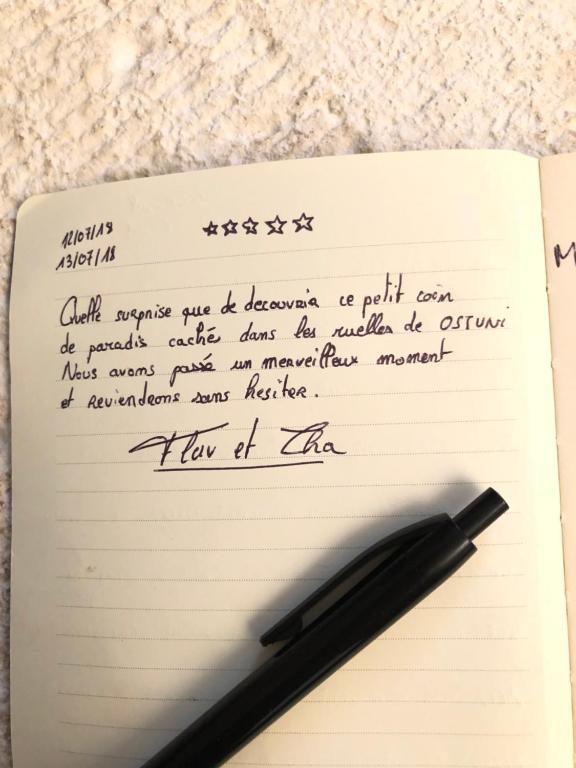 12/07/18
☆☆☆☆☆
13/07/18
Quelle surprise que de decouvrir ce petit coin
de paradis caché dans les ruelles de OSTUNI
Nous avons passé un merveilleux moment
et reviendrons sans hesiter.
Flav et Cha
M